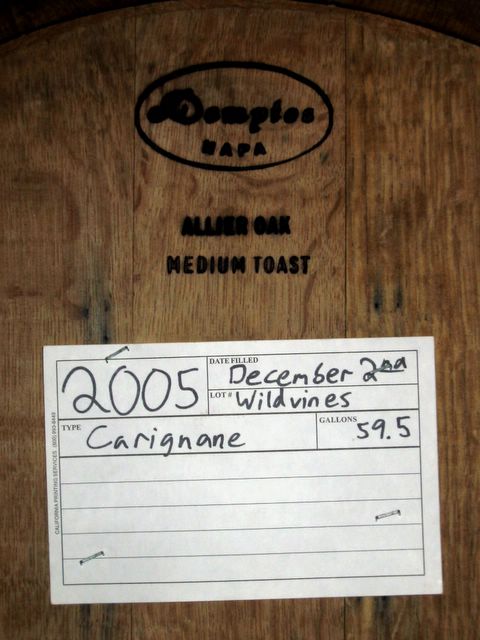 Demptos
NAPA
ALLIER OAK
MEDIUM TOAST
2005
DATE FILLED
December 2nd
LOT #
Wildvines
TYPE
Carignane
GALLONS
59.5
CALIFORNIA PRINTING SERVICES